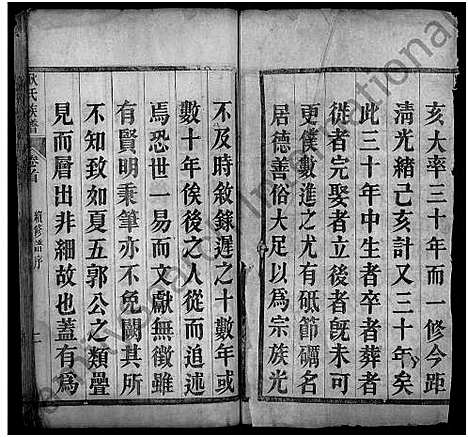 亥大率三十年而一修今距
清光緒己亥計又三十年矣
此三十年中生者卒者葬者
從者完娶者立後者旣未可
更僕數進之尤有砥節礪名
居德善俗大足以爲宗族光
不及時敘錄遲之十數年或
數十年俟後之人從而追述
焉恐世一易而文獻無徵雖
有賢明秉筆亦不免闕其所
不知致如夏五郭公之類疊
見而層出非細故也蓋有爲
氏族譜
卷首
續修譜序
二